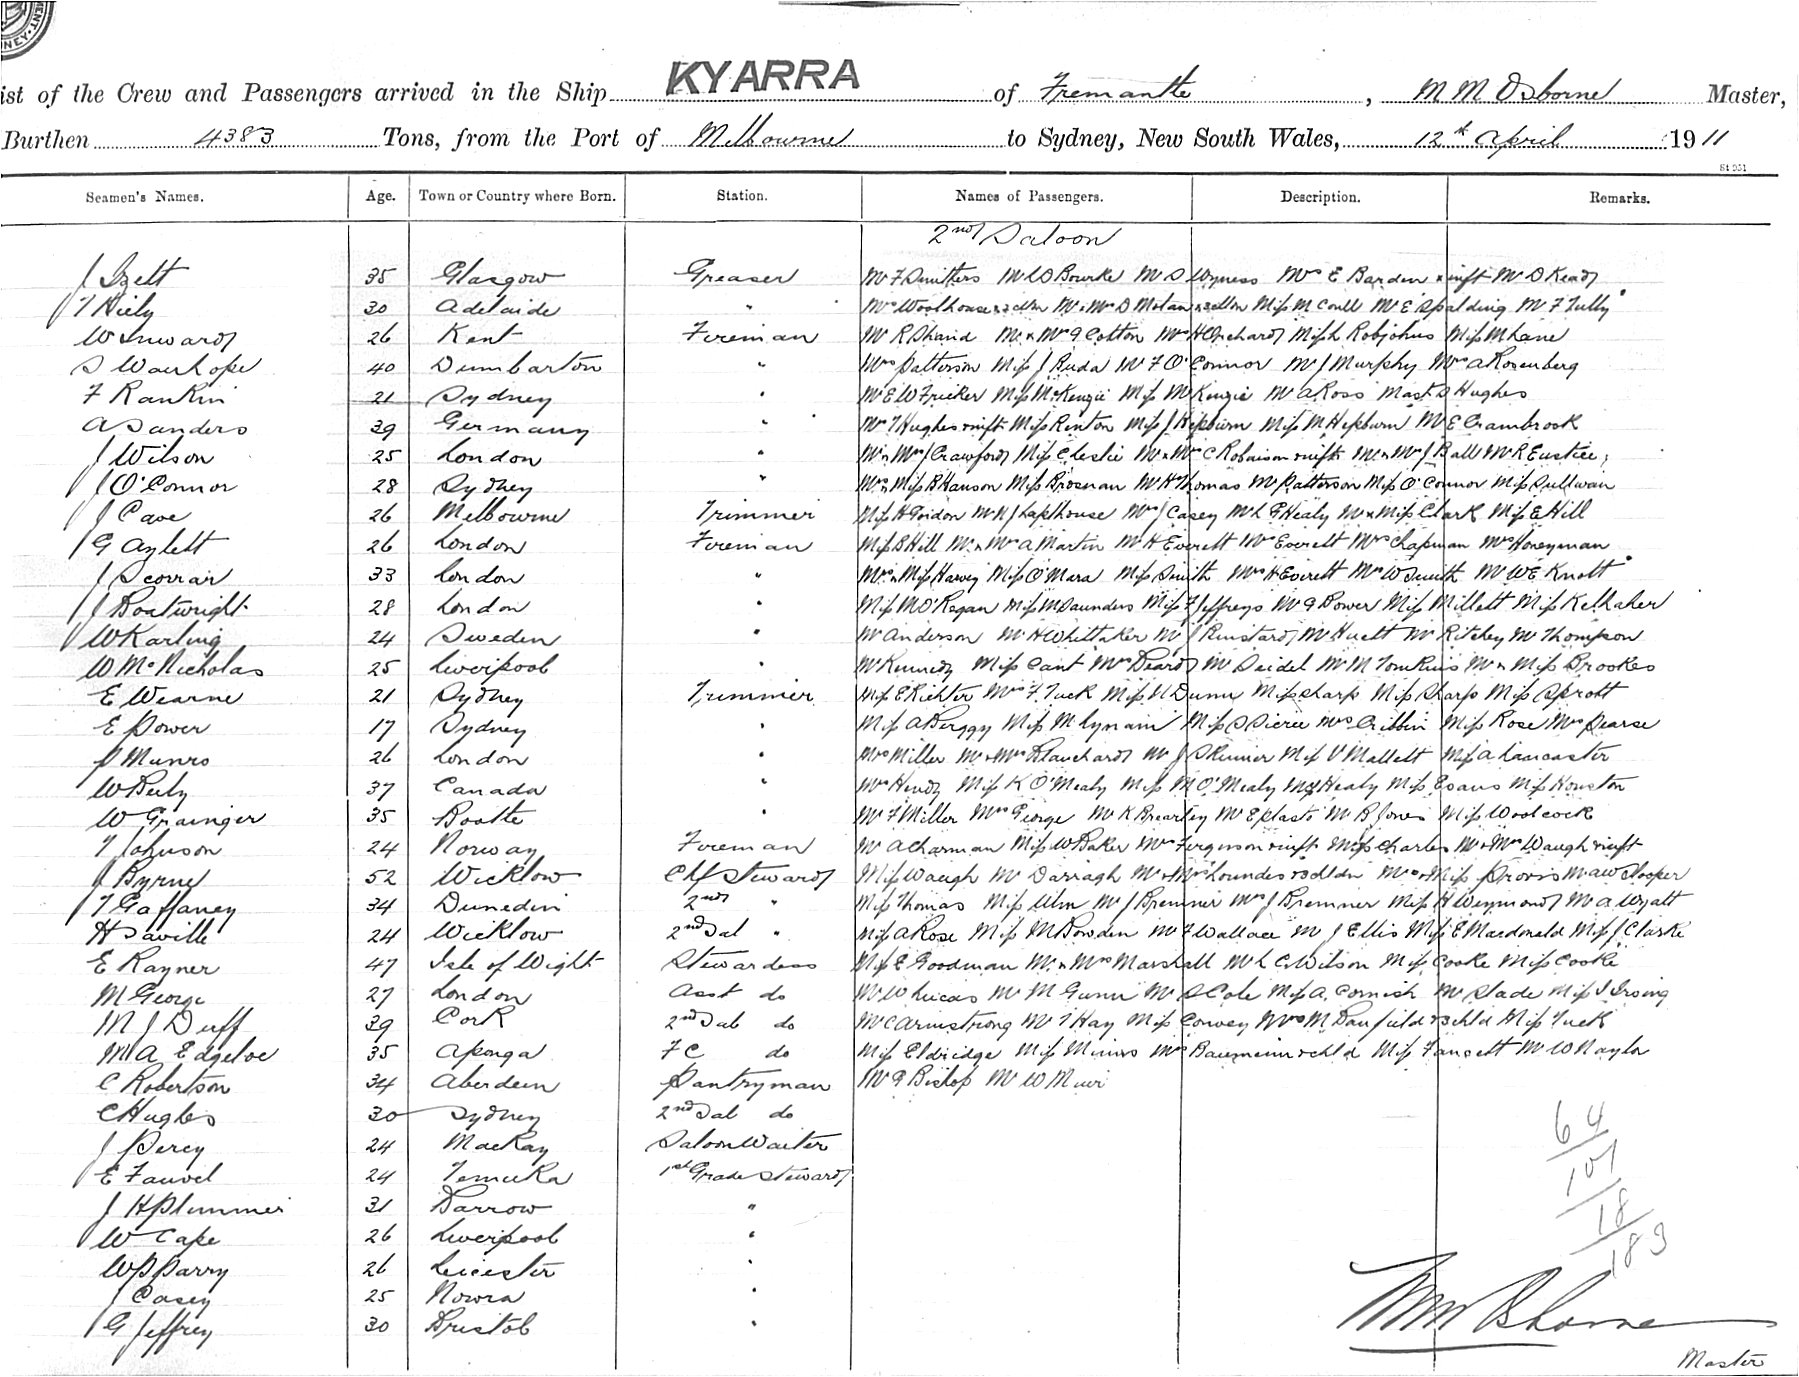 MENT. NEY.
ist of the Crew and Passengers arrived in the Ship KYARRA of Fremantle, M M Osborne Master,
Burthen 4383 Tons, from the Port of Melbourne to Sydney, New South Wales, 12th April 1911
St 951
Seamen's Names. Age. Town or Country where Born. Station. Names of Passengers. Description. Remarks.
2nd Saloon
J Izett 35 Glasgow Greaser Mr F Smitters Mr D Bourke Mr S Wyness Mrs E Barden & inft Mr D Keady
T Hiely 30 Adelaide " Mrs Woolhouse & 2 chn Mr & Mrs D Molan & 2 chn Miss M Coull Mr E Spalding Mr F Tully
W Inward 26 Kent Fireman Mr R Shand Mr & Mrs G Cotton Mr H Orchard Miss L Robjohns Miss M Lane
S Wauhope 40 Dumbarton " Mrs Patterson Miss J Buda Mr F O'Connor Mr J Murphy Mrs A Rosenberg
F Rankin 21 Sydney " Mr E W Fricker Miss McKenzie Miss McKenzie Mr A Ross Mast S Hughes
A Sanders 39 Germany " Mrs T Hughes & inft Miss Renton Miss J Hepburn Miss M Hepburn Mr E Crambrook
J Wilson 25 London " Mr & Mrs J Crawford Miss C Leslie Mr & Mrs C Robinson & inft Mr & Mrs J Ball Mr R Eustice
J O'Connor 28 Sydney " Mrs & Miss B Hanson Miss Brosnan Mr H Thomas Mr Patterson Miss O'Connor Miss Sullivan
J Cave 26 Melbourne Trimmer Miss H Gordon Mr N J Lapthouse Mrs J Casey Mr L G Healy Mr & Miss Clark Miss E Hill
G Aylett 26 London Fireman Miss B Hill Mr & Mrs A Martin Mr H Everett Mr Everett Mrs Chapman Mrs Honeyman
J Scorrar 33 London " Mrs & Miss Harvey Miss O'Mara Miss Smith Mrs H Everett Mrs W Smith Mr W E Knott
J Boatwright 28 London " Miss M O'Regan Miss M Saunders Miss F Jeffreys Mr G Bower Miss Millett Miss Kelhaher
W Karling 24 Sweden " Mr Anderson Mr H Whittaker Mr J Mr Huett Mr Ritchey Mr Thompson
W McNicholas 25 Liverpool " Mr Kennedy Miss Cant Mrs Beard Mr Seidel Mr M Tomkins Mr & Miss Brookes
E Wearne 21 Sydney Trimmer Miss E Richter Mrs F Tuck Miss N Dunn Miss Sharp Miss Sharp Miss Sprott
E Power 17 Sydney " Miss A Beggy Miss M Lynain Miss S Pierce Mrs Cribbin Miss Rose Mrs Pearse
P Munro 26 London " Mrs Miller Mr & Mrs Blanchard Mr J Skinner Miss V Mallett Miss A Lancaster
W Bely 37 Canada " Mrs Hendy Miss K O'Mealy Miss M O'Mealy Mrs Healy Miss Evans Miss Houston
W Grainger 35 Bootle " Mr F Miller Mrs George Mr K Brearley Mr E Plasto Mr B Jones Miss Woolcock
T Johnson 24 Norway Fireman Mr A Charman Miss W Baker Mrs Ferguson & inft Miss Charles Mr & Mrs Waugh & inft
J Byrne 52 Wicklow Chf Steward Miss Waugh Mr Darragh Mr & Mrs Loundes & 3 chldn Mrs & Miss Provis Mr A W Hooper
T Gaffaney 34 Dunedin 2nd " Miss Thomas Miss Ulm Mr J Bremner Mrs J Bremner Miss H Weymond Mr A Wyatt
H Saville 24 Wicklow 2nd Sal " Miss A Rose Miss M Bowden Mr F Wallace Mr J Ellis Miss E Macdonald Miss J Clarke
E Rayner 47 Isle of Wight Stewardess Miss E Goodman Mr & Mrs Marshall Mr L C Wilson Miss Cooke Miss Cooke
M George 27 London Asst do Mr W Lucas Mr M Gunn Mr S Cole Miss A Cornish Mr Slade Miss I Irving
M J Duff 39 Cork 2nd Sal do Mr C Armstrong Mr T Hay Miss Convey Mrs M Banfield & chld Miss Tuck
M A Edgeloe 35 Aponga F C do Miss Eldridge Miss Minns Mrs & chld Miss Fawsett Mr W Naylor
C Robertson 34 Aberdeen Pantryman Mr G Bishop Mr W Muir
C Hughes 30 Sydney 2nd Sal do
J Percy 24 MacKay Saloon Waiter
E Fauvel 24 Temuka 1st Grade Steward
J H Plummer 31 Barrow "
W Cape 26 Liverpool "
W P Parry 26 Leicester "
J Casey 25 Nowra "
G Jeffrey 30 Bristol "
64
101
18
183
M M Osborne
Master